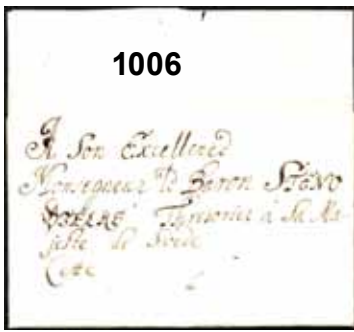 1006
A Son Excellence
Monseigneur le Baron
Thresorier a Sa Ma
jesté de Svede